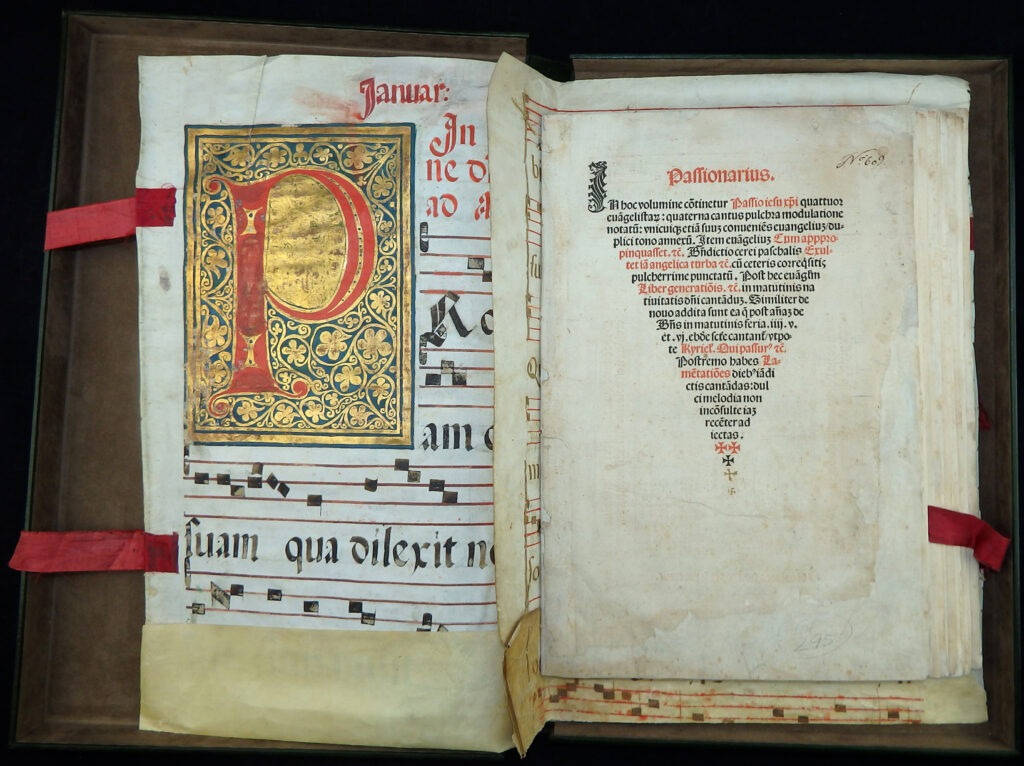 Januar:
In
ne d
ad
P
Ro
am
suam qua dilexit no
Nº 609
Passionarius.
IN hoc volumine cõtinetur Passio iesu xp̃i quattuor
euãgelistaꝝ: quaterna cantus pulchra modulatione
notatũ: vnicuiqꝫ etiã suuꝫ conueniẽs euangeliuꝫ/du-
plici tono annexũ. Item euãgeliuꝫ Cum appro-
pinquasset. ⁊c̃. Bñdictio cerei paschalis Exul-
tet iã angelica turba ⁊c̃. cũ ceteris coꝛreq̃sitis
pulcherrime punctatũ. Post hec euãg̃lm
Liber generatiõis. ⁊c̃. in matutinis na
tiuitatis dñi cantãduꝫ. Similiter de
nouo addita sunt ea q̃ post añas de
Bñs in matutinis feria. iiij. v.
et. vj. ebdõe scẽ cantant᷑/vtpo-
te Kyriel. Qui passurꝰ ⁊c̃.
Postremo habes La-
mẽtatiões diebꝰ iãdi
ctis cantãdas: dul
ci melodia non
incõsulte iaꝫ
recẽter ad
iectas.
295